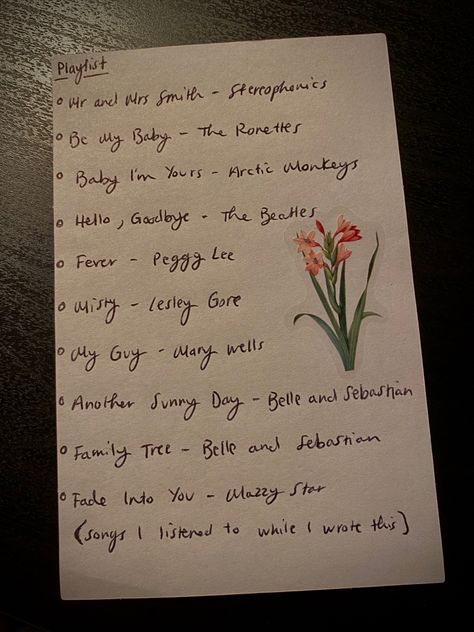 Playlist
• Mr and Mrs Smith - Stereophonics
• Be My Baby - The Ronettes
• Baby I'm Yours - Arctic Monkeys
• Hello, Goodbye - The Beatles
• Fever - Peggy Lee
• Misty - Lesley Gore
• My Guy - Mary Wells
• Another Sunny Day - Belle and Sebastian
• Family Tree - Belle and Sebastian
• Fade Into You - Mazzy Star
(songs I listened to while I wrote this)